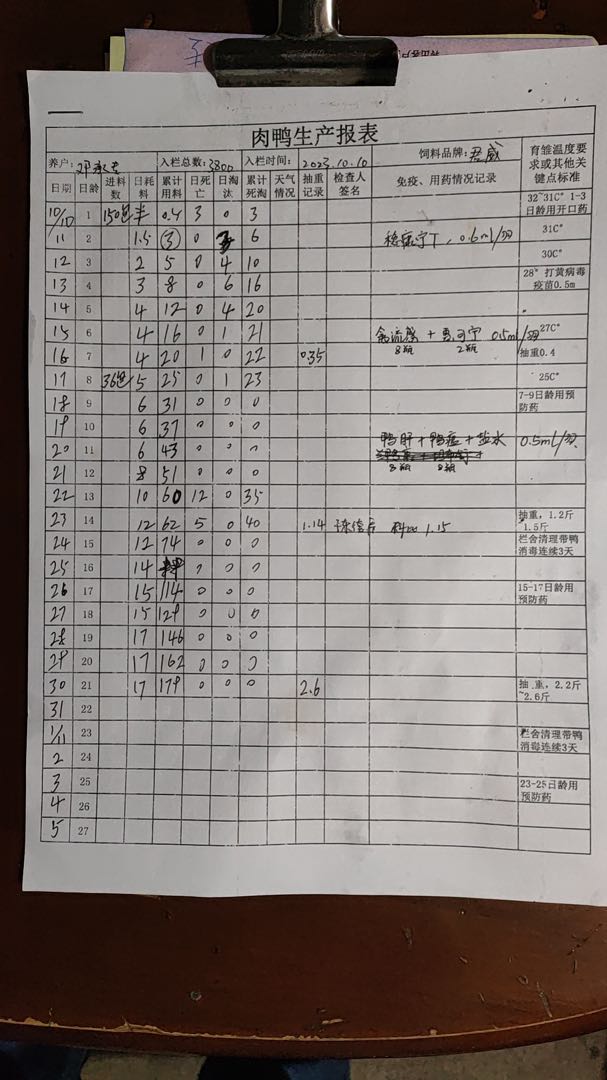 肉鸭生产报表
养户: 入栏总数:3800 入栏时间: 2023.10.10 饲料品牌:君威 育雏温度要求或其他关键点标准
日期 日龄 进料数 日耗料 累计用料 日死亡 日淘汰 累计死淘 天气情况 抽重记录 检查人签名 免疫、用药情况记录
10/10 1 150包 半 0.4 3 0 3 32~31C° 1-3日龄用开口药
11 2 1.5 3 0 3 6 0.6ml/羽 31C°
12 3 2 5 0 4 10 30C°
13 4 3 8 0 6 16 28° 打黄病毒疫苗0.5m
14 5 4 12 0 4 20
15 6 4 16 0 1 21 禽流感 + 0.5ml/羽 27C°
8瓶 2瓶
16 7 4 20 1 0 22 0.35 抽重0.4
17 8 36包 5 25 0 1 23 25C°
18 9 6 31 0 0 0 7-9日龄用预防药
19 10 6 37 0 0 0
20 11 6 43 0 0 0 鸭肝+鸭瘟+盐水 0.5mL/羽
8瓶 8瓶
21 12 8 51 0 0 0
22 13 10 60 12 0 35
23 14 12 62 5 0 40 1.14 1.15 抽重, 1.2斤 1.5斤
24 15 12 74 0 0 0 栏舍清理带鸭消毒连续3天
25 16 14 0 0 0
26 17 15 114 0 0 0 15-17日龄用预防药
27 18 15 129 0 0 0
28 19 17 146 0 0 0
29 20 17 162 0 0 0
30 21 17 179 0 0 0 2.6 抽重, 2.2斤~2.6斤
31 22
1/11 23 栏舍清理带鸭消毒连续3天
2 24
3 25 23-25日龄用预防药
4 26
5 27